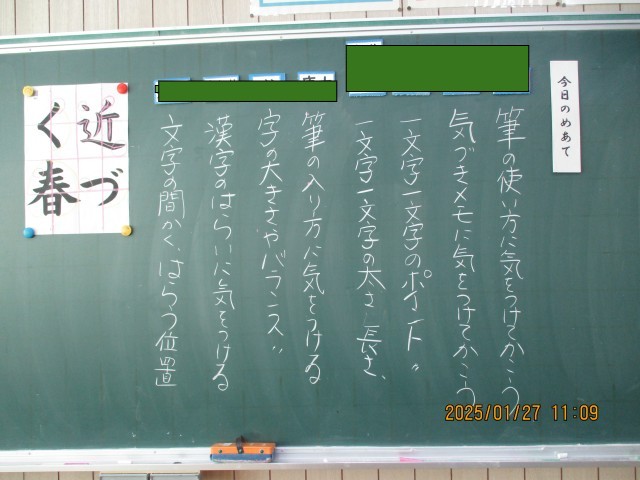 今日のめあて
筆の使い方に気をつけてかこう
気づきメモに気をつけてかこう
一文字一文字のポイント〃
一文字一文字の太さ、長さ、
筆の入り方に気をつける
字の大きさやバランス〃
漢字のはらいに気をつける
文字の間かく、はらう位置
近づ
く春
2025/01/27 11:09